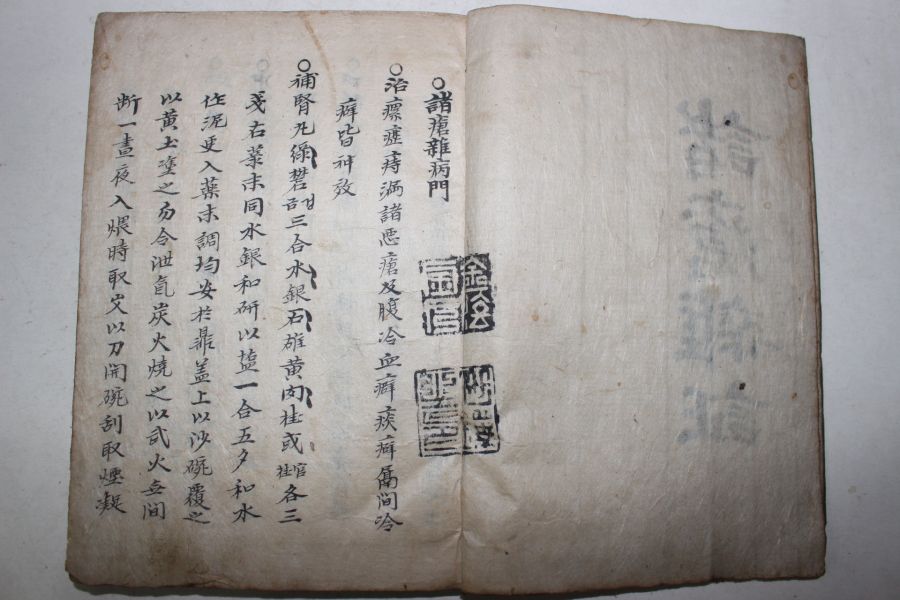 ○諸瘡雜病門
○治瘰癧痔漏諸惡瘡及腹冷血癖痰癖膈間冷
癖皆神效
○補腎丸綠礬三合水銀石雄黃肉桂或官桂各三
戔右藥末同水銀和硏以塩一合五夕和水
作泥更入藥末調均安於鼎盖上以沙碗覆之
以黃土塗之勿令泄氣炭火燒之以武火無間
断一晝夜入煨時取出以刀開碗刮取煙凝